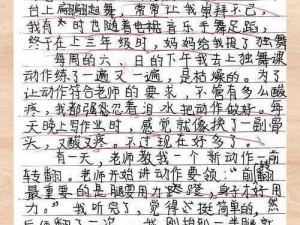 台上翩翩起舞，常常让我崇拜不已，
我有时也随着电视音乐手舞足蹈，
终于在上三年级时，妈妈给我报了独舞
每周的六、日的下午我去上独舞课
动作练了一遍又一遍，是枯燥的。为了
让动作符合老师的要求，不管有多么酸
疼，我都强忍着泪水把动作做好。每
天晚上写作业时，感觉就像换了一副骨
头，又酸又疼。不过现在好多了。
有一天，老师教我一个新动作—前
转翻。老师开始讲动作要领：“前翻
最重要的是腿要用力，身子才好用
力。”我听完了，觉得挺简单的，然